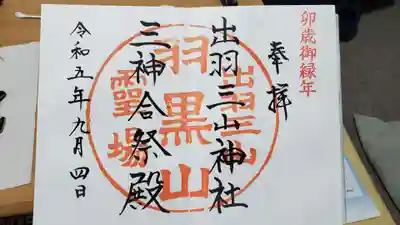 卯歳御縁年
奉拝
出羽三山神社
三神合祭殿
令和五年九月四日
出羽三山
羽黒山
霊場